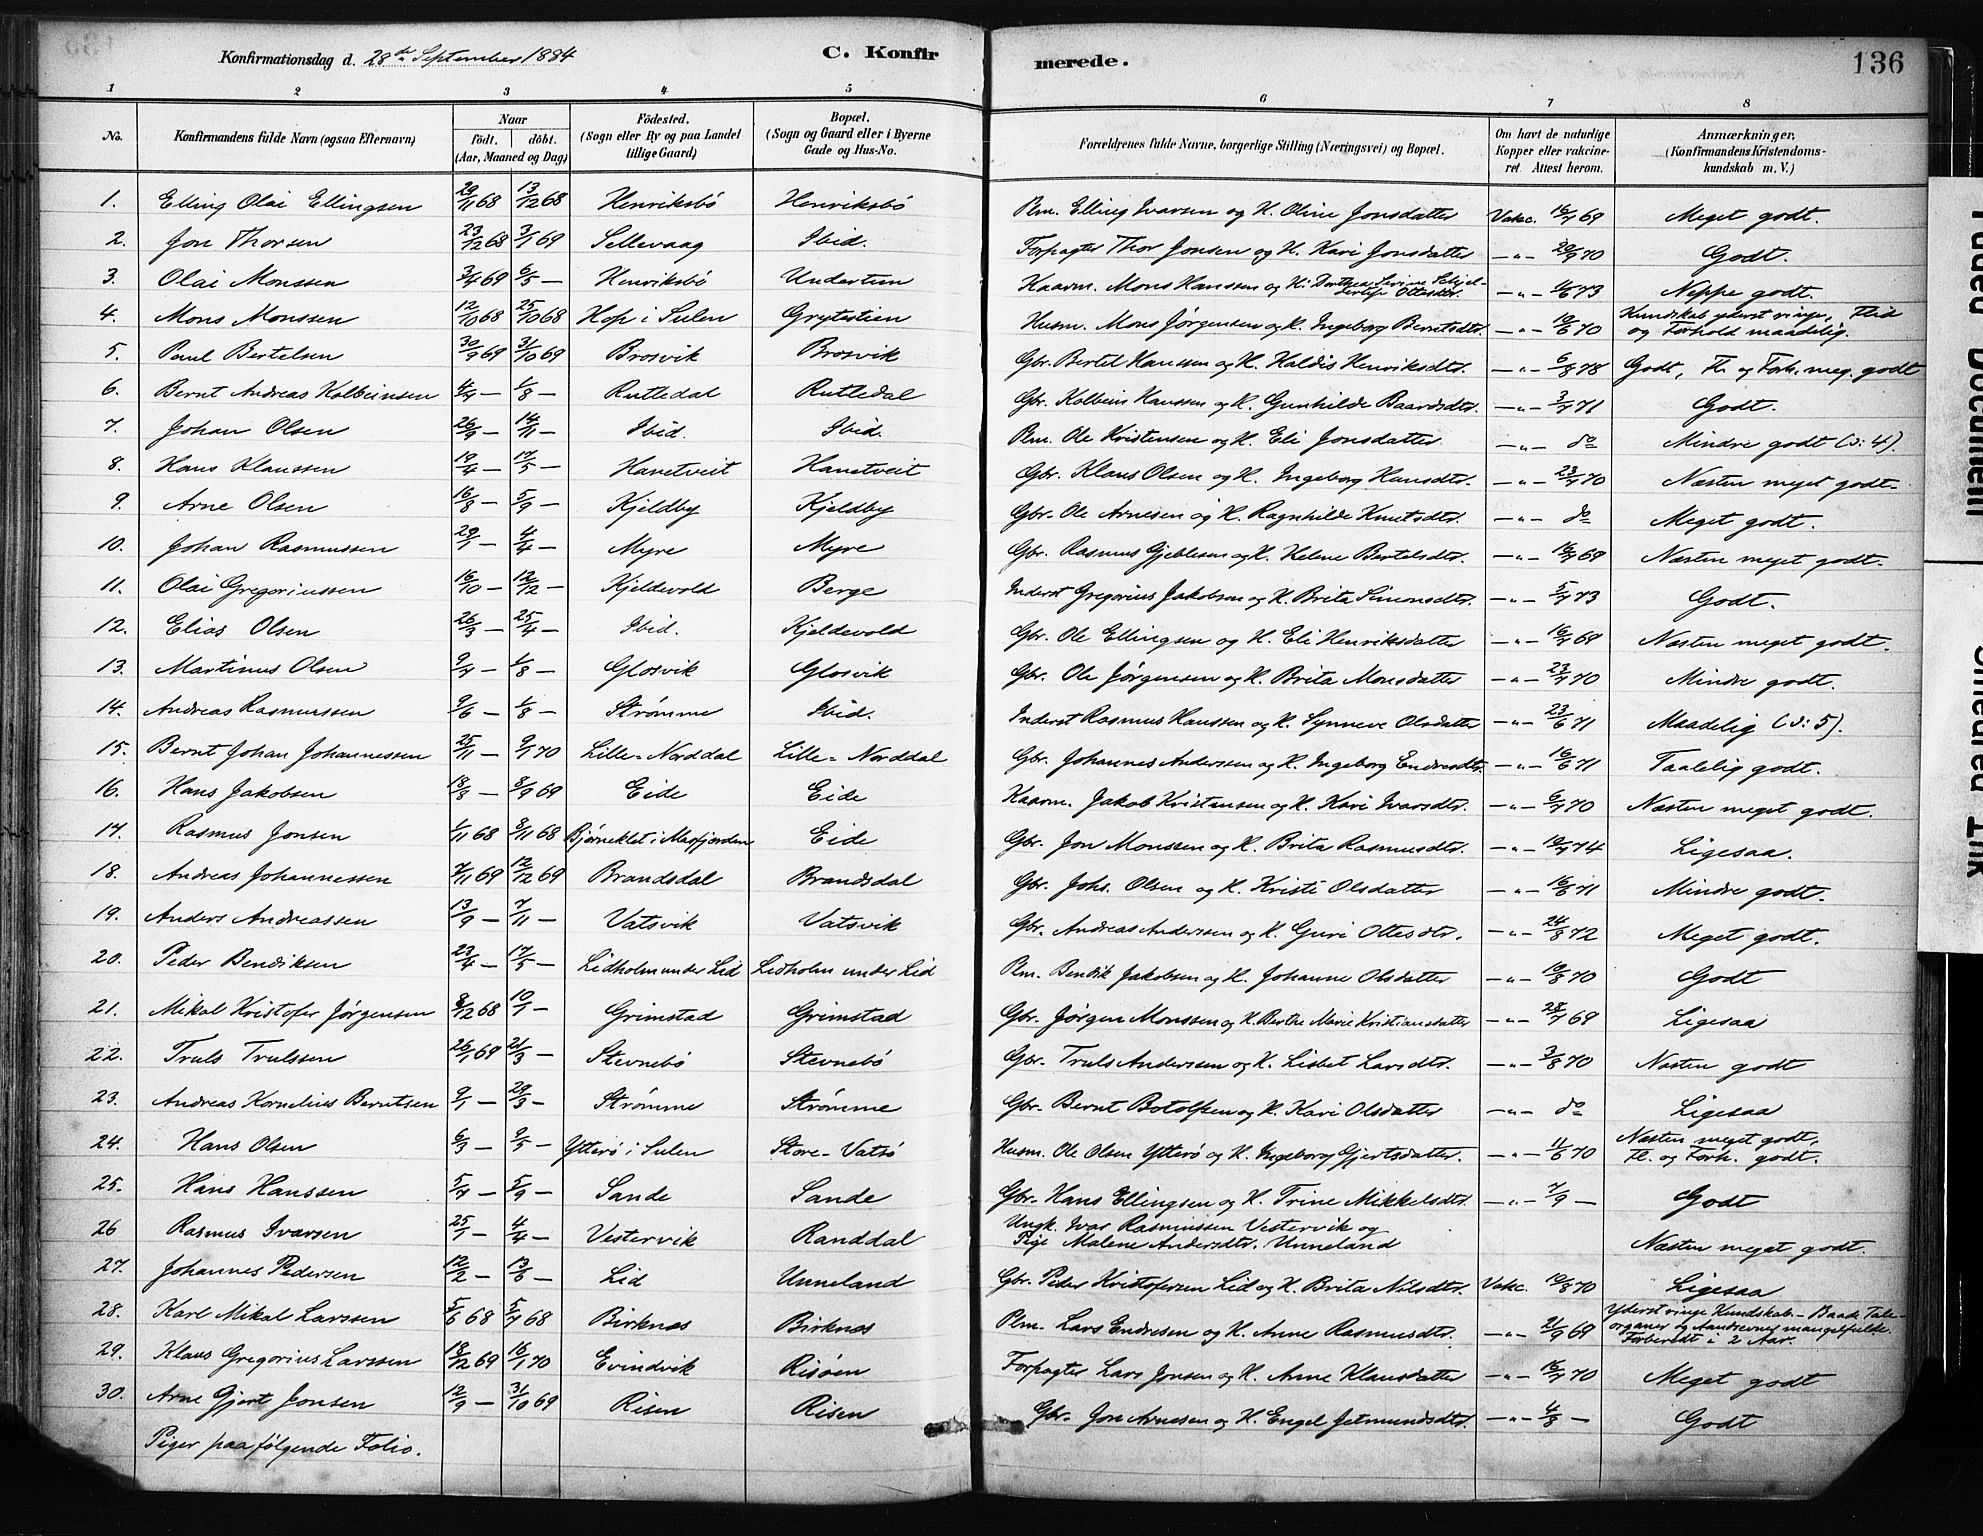 Konfirmationsdag d. 28de September 1884 C. Konfirmerede. 136
1 2 3 4 5 6 7 8
No. Konfirmandens fulde Navn (ogsaa Efternavn) Naar født. døbt. (Aar, Maaned og Dag) Fødested. (Sogn eller By og paa Landet tillige Gaard) Bopæl. (Sogn og Gaard eller i Byerne Gade og Hus-No. Forældrenes fulde Navne, borgerlige Stilling (Næringsvei) og Bopæl. Om havt de naturlige Kopper eller vakcineret. Attest herom. Anmærkninger, (Konfirmandens Kristendomskundskab m. V.)
1. Elling Olai Ellingsen 29/11 68 13/12 68 Henriksbø Henriksbø Plm. Elling Ivarsen og H. Oline Jonsdatter Vakc. 16/7 69 Meget godt.
2. Jon Thorsen 23/12 68 3/1 69 Sellevaag Ibid. Forpagter Thor Jonsen og H. Kari Jonsdatter —"— 20/9 70 Godt.
3. Olai Monssen 3/4 69 6/5 — Henriksbø Undertun Kaarm. Mons Hanssen og H. Dorthea Ottesdtr. —"— 73 Neppe godt.
4. Mons Monssen 12/10 68 25/10 68 Hop i Sulen Grytestien Husm. Mons Jørgensen og H. Ingeborg Berntsdtr. —"— 10/6 70 Kundskab yderst ringe, Flid og Forhold maadelig.
5. Paul Bertelsen 30/9 69 31/10 69 Brosvik Brosvik Gbr. Bertel Hanssen og H. Haldis Henriksdtr. —"— 6/8 78 Godt, Fl. og Forh. meg. godt
6. Bernt Andreas Kolbeinsen 4/7 — 1/8 — Rutledal Rutledal Gbr. Kolbein Hanssen og H. Gunhilde Baardsdtr. —"— 3/7 71 Godt.
7. Johan Olsen 26/9 — 14/11 — Ibid. Ibid. Plm. Ole Kristensen og H. Eli Jonsdatter —"— do Mindre godt (ɔ: 4).
8. Hans Klaussen 19/4 — 17/5 — Hanetveit Hanetveit Gbr. Klaus Olsen og H. Ingeborg Hansdtr. —"— 23/7 70 Næsten meget godt.
9. Arne Olsen 16/8 — 5/9 — Kjeldby Kjeldby Gbr. Ole Arnesen og H. Ragnhilde Knutsdtr. —"— do Meget godt.
10. Johan Rasmussen 29/1 — 4/4 — Myre Myre Gbr. Rasmus Gjeblesen og H. Helene Bertelsdtr. —"— 16/7 69 Næsten meget godt.
11. Olai Gregoriussen 16/10 — 12/12 — Kjeldevold Berge Inderst Gregorius Jakobsen og H. Brita Simonsdtr. —"— 5/7 73 Godt.
12. Elias Olsen 26/3 — 25/4 — Ibid. Kjeldevold Gbr. Ole Ellingsen og H. Eli Henriksdatter —"— 16/7 69 Næsten meget godt.
13. Martinus Olsen 9/7 — 1/8 — Glosvik Glosvik Gbr. Ole Jørgensen og H. Brita Monsdatter —"— 23/7 70 Mindre godt.
14. Andreas Rasmussen 9/6 — 1/8 — Strømme Ibid. Inderst Rasmus Hanssen og H. Synneve Olsdatter —"— 23/6 71 Maadelig (ɔ: 5).
15. Bernt Johan Johannessen 25/11 — 9/1 70 Lille-Norddal Lille-Norddal Gbr. Johannes Anderssen og H. Ingeborg Endresdtr. —"— 16/6 71 Taalelig godt.
16. Hans Jakobsen 18/8 — 8/9 69 Eide Eide Kaarm. Jakob Kristansen og H. Kari Ivarsdtr. —"— 6/7 70 Næsten meget godt.
17. Rasmus Jonsen 1/11 68 8/11 68 Bjørneklet i Masfjorden Eide Gbr. Jon Monssen og H. Brita Rasmusdtr. —"— 19/7 74 Ligesaa.
18. Andreas Johannessen 7/11 69 12/12 69 Brandsdal Brandsdal Gbr. Johs. Olsen og H. Kristi Olsdatter —"— 16/6 71 Mindre godt.
19. Anders Andreassen 13/9 — 7/11 — Vatsvik Vatsvik Gbr. Andreas Anderssen og H. Guri Ottesdtr. —"— 24/8 72 Meget godt.
20. Peder Bendiksen 23/4 — 17/5 — Lidholm under Lid Lidholm under Lid Plm. Bendik Jakobsen og H. Johanne Olsdatter —"— 10/8 70 Godt
21. Mikal Kristofer Jørgensen 8/12 68 10/1 — Grimstad Grimstad Gbr. Jørgen Monssen og H. Berthe Marie Kristiansdatter —"— 28/7 69 Ligesaa
22. Truls Trulssen 26/1 69 21/3 — Stevnebø Stevnebø Gbr. Truls Anderssen og H. Lisbet Larsdtr. —"— 3/8 70 Næsten godt
23. Andreas Kornelius Berntsen 9/1 — 29/3 — Strømme Strømme Gbr. Bernt Botolfsen og H. Kari Olsdatter —"— do Ligesaa
24. Hans Olsen 6/3 — 9/5 — Ytterø i Sulen Store-Vatsø Husm. Ole Olsen Ytterø og H. Ingeborg Gjertsdatter. —"— 11/6 70 Næsten meget godt, Fl. og Forh. godt.
25. Hans Hanssen 5/7 — 5/9 — Sande Sande Gbr. Hans Ellingsen og H. Trine Mikkelsdtr. —"— 7/9 — Godt
26 Rasmus Ivarsen 25/1 — 4/4 — Vestervik Randdal Ungk. Ivar Rasmussen Vestervik og Pige Malene Andersdtr. Unneland Næsten meget godt.
27. Johannes Pedersen 12/2 — 13/6 — Lid Unneland Gbr. Peder Kristofersen Lid og H. Brita Nilsdtr. Vakc. 10/8 70 Ligesaa
28. Karl Mikal Larssen 5/6 68 5/7 68 Birknes Birknes Plm. Lars Endresen og H. Anne Rasmusdtr. —"— 21/9 69 Yderst ringe Kundskab – Baade Taleorganer og Aandsevner mangelfulde. Forberedt i 2 Aar.
29. Klaus Gregorius Larssen 18/12 69 16/1 70 Evindvik Risøen Forpagter Lars Jonsen og H. Anne Klausdatter —"— 16/7 70 Meget godt
30. Arne Gjert Jonsen 12/9 — 31/10 69 Risen Risen Gbr. Jon Arnesen og H. Engel Jetmundsdtr. —"— 4/8 — Godt
Piger paa følgende Folio.